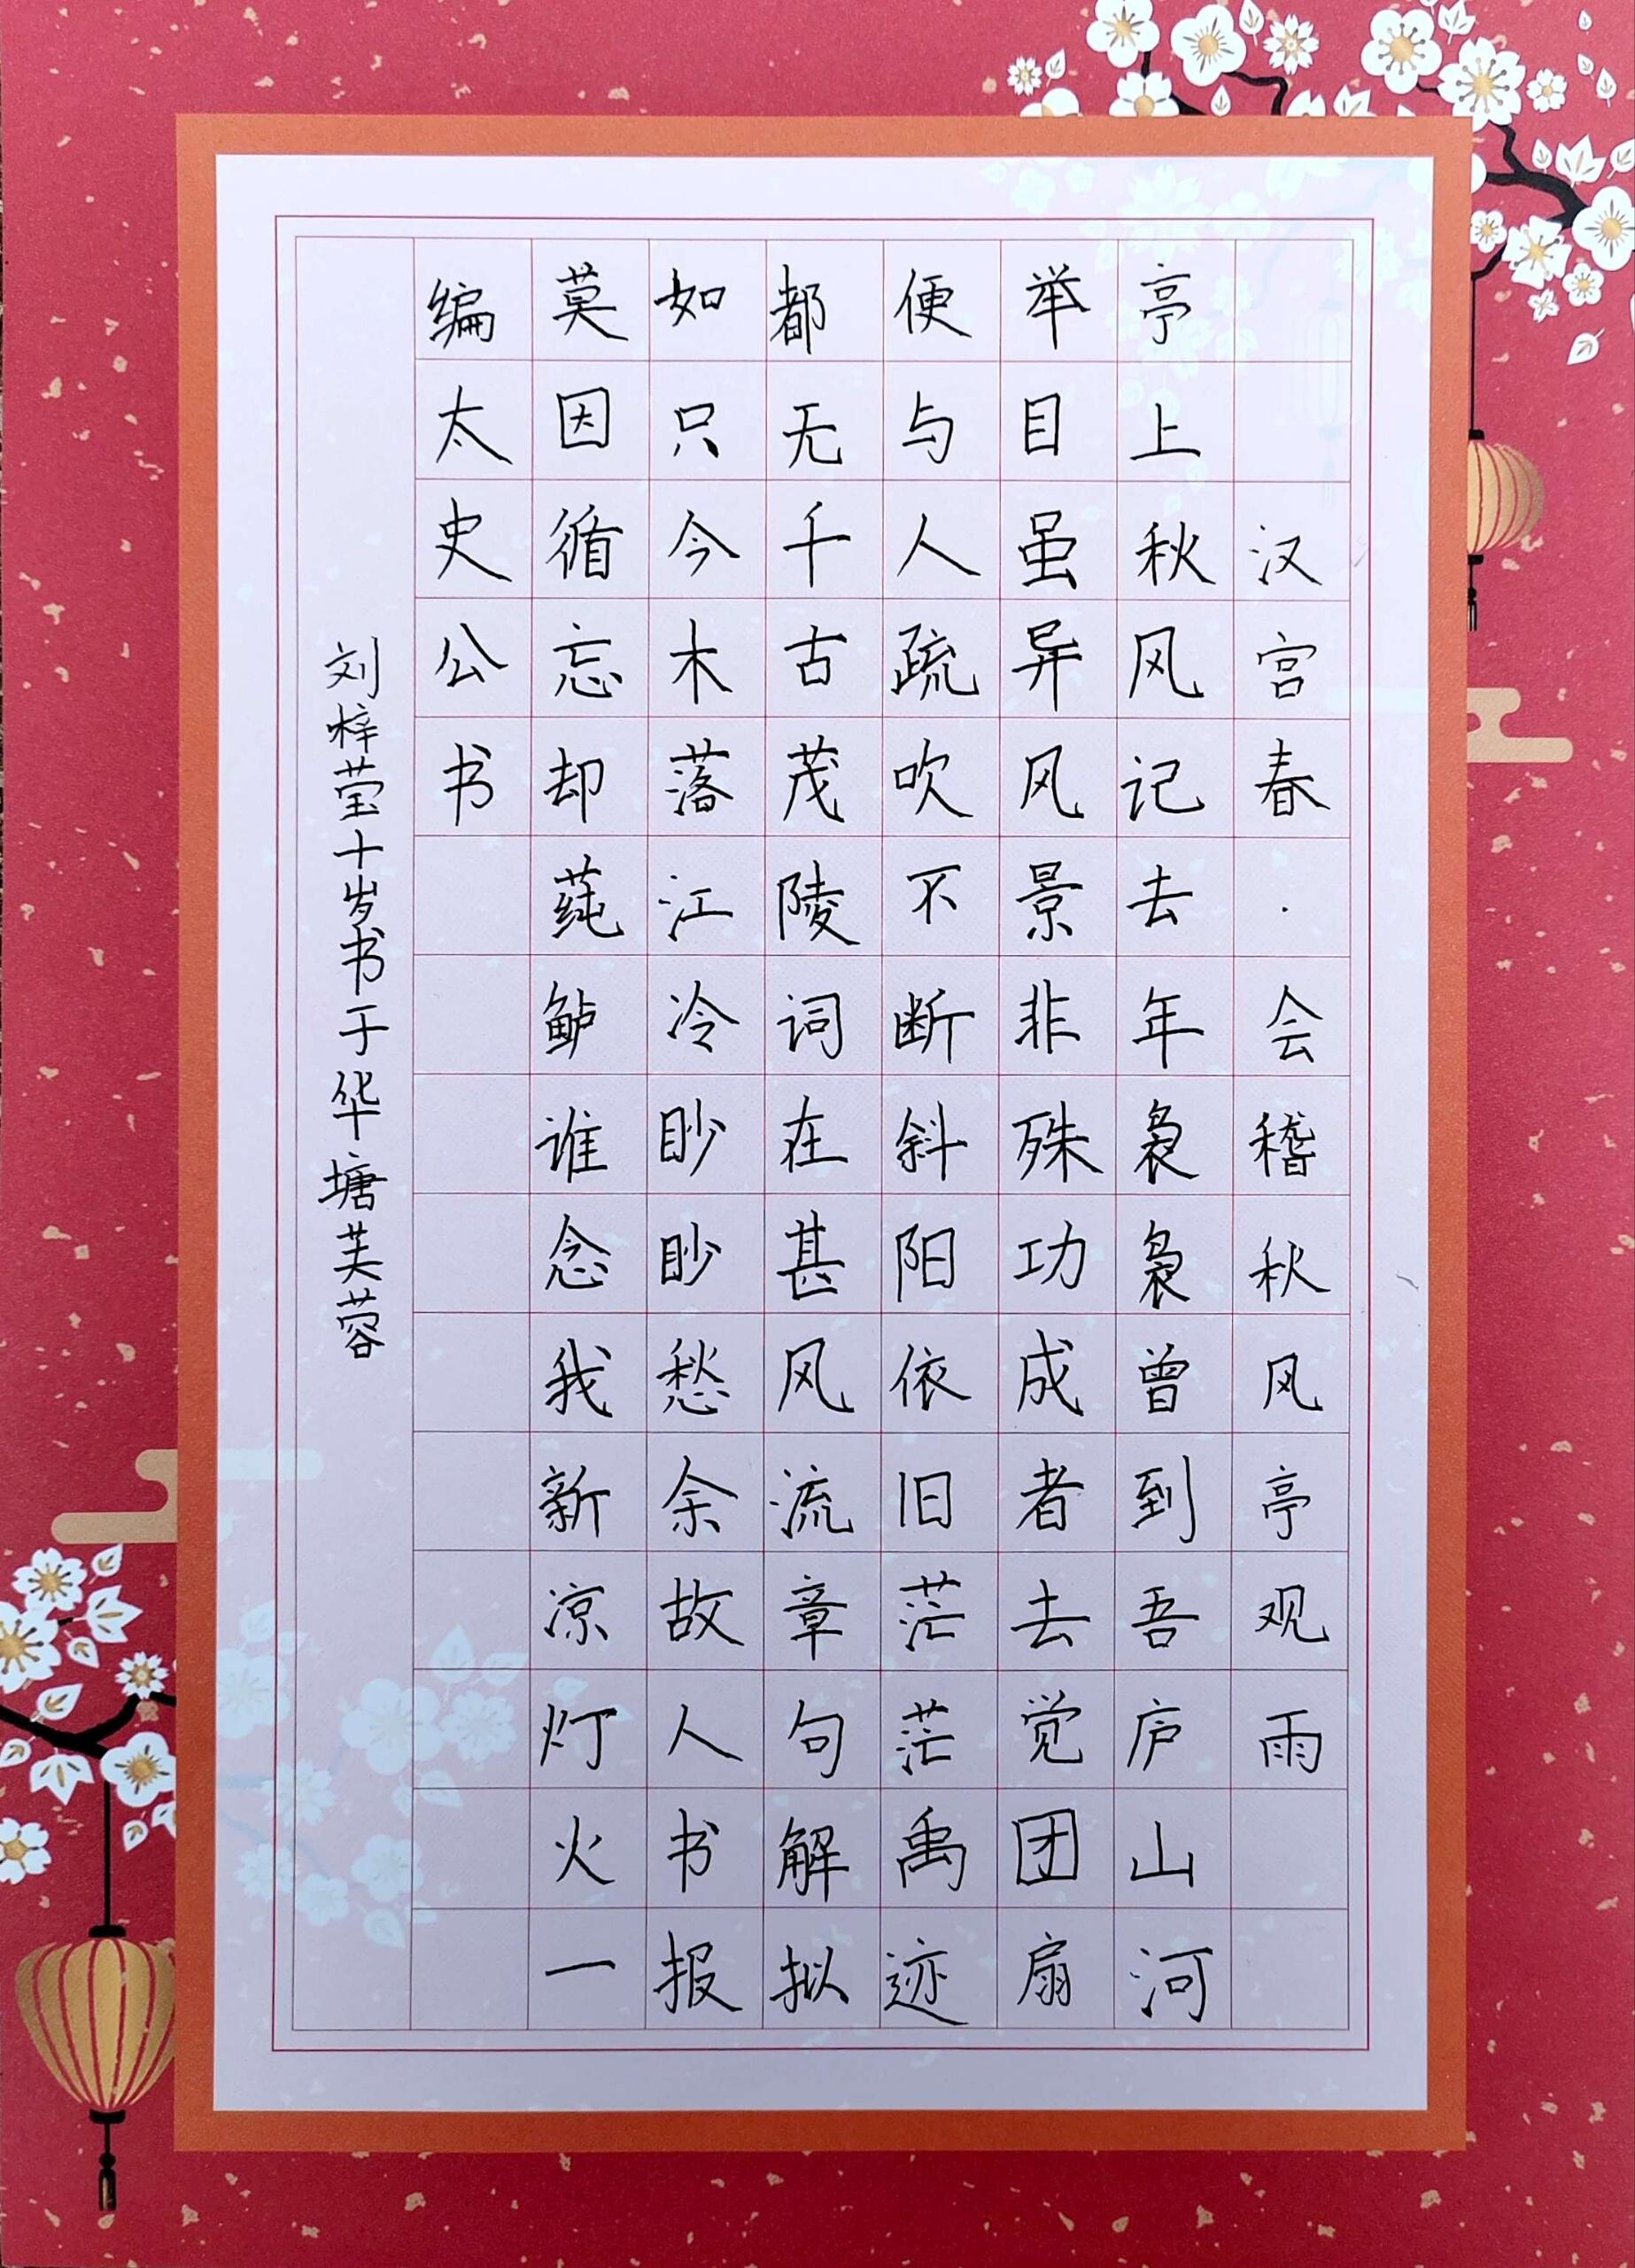 汉宫春·会稽秋风亭观雨
亭上秋风记去年袅袅曾到吾庐山河
举目虽异风景非殊功成者去觉团扇
便与人疏吹不断斜阳依旧茫茫禹迹
都无千古茂陵词在甚风流章句解拟
如只今木落江冷眇眇愁余故人书报
莫因循忘却莼鲈谁念我新凉灯火一
编太史公书
刘梓莹十岁书于华塘芙蓉